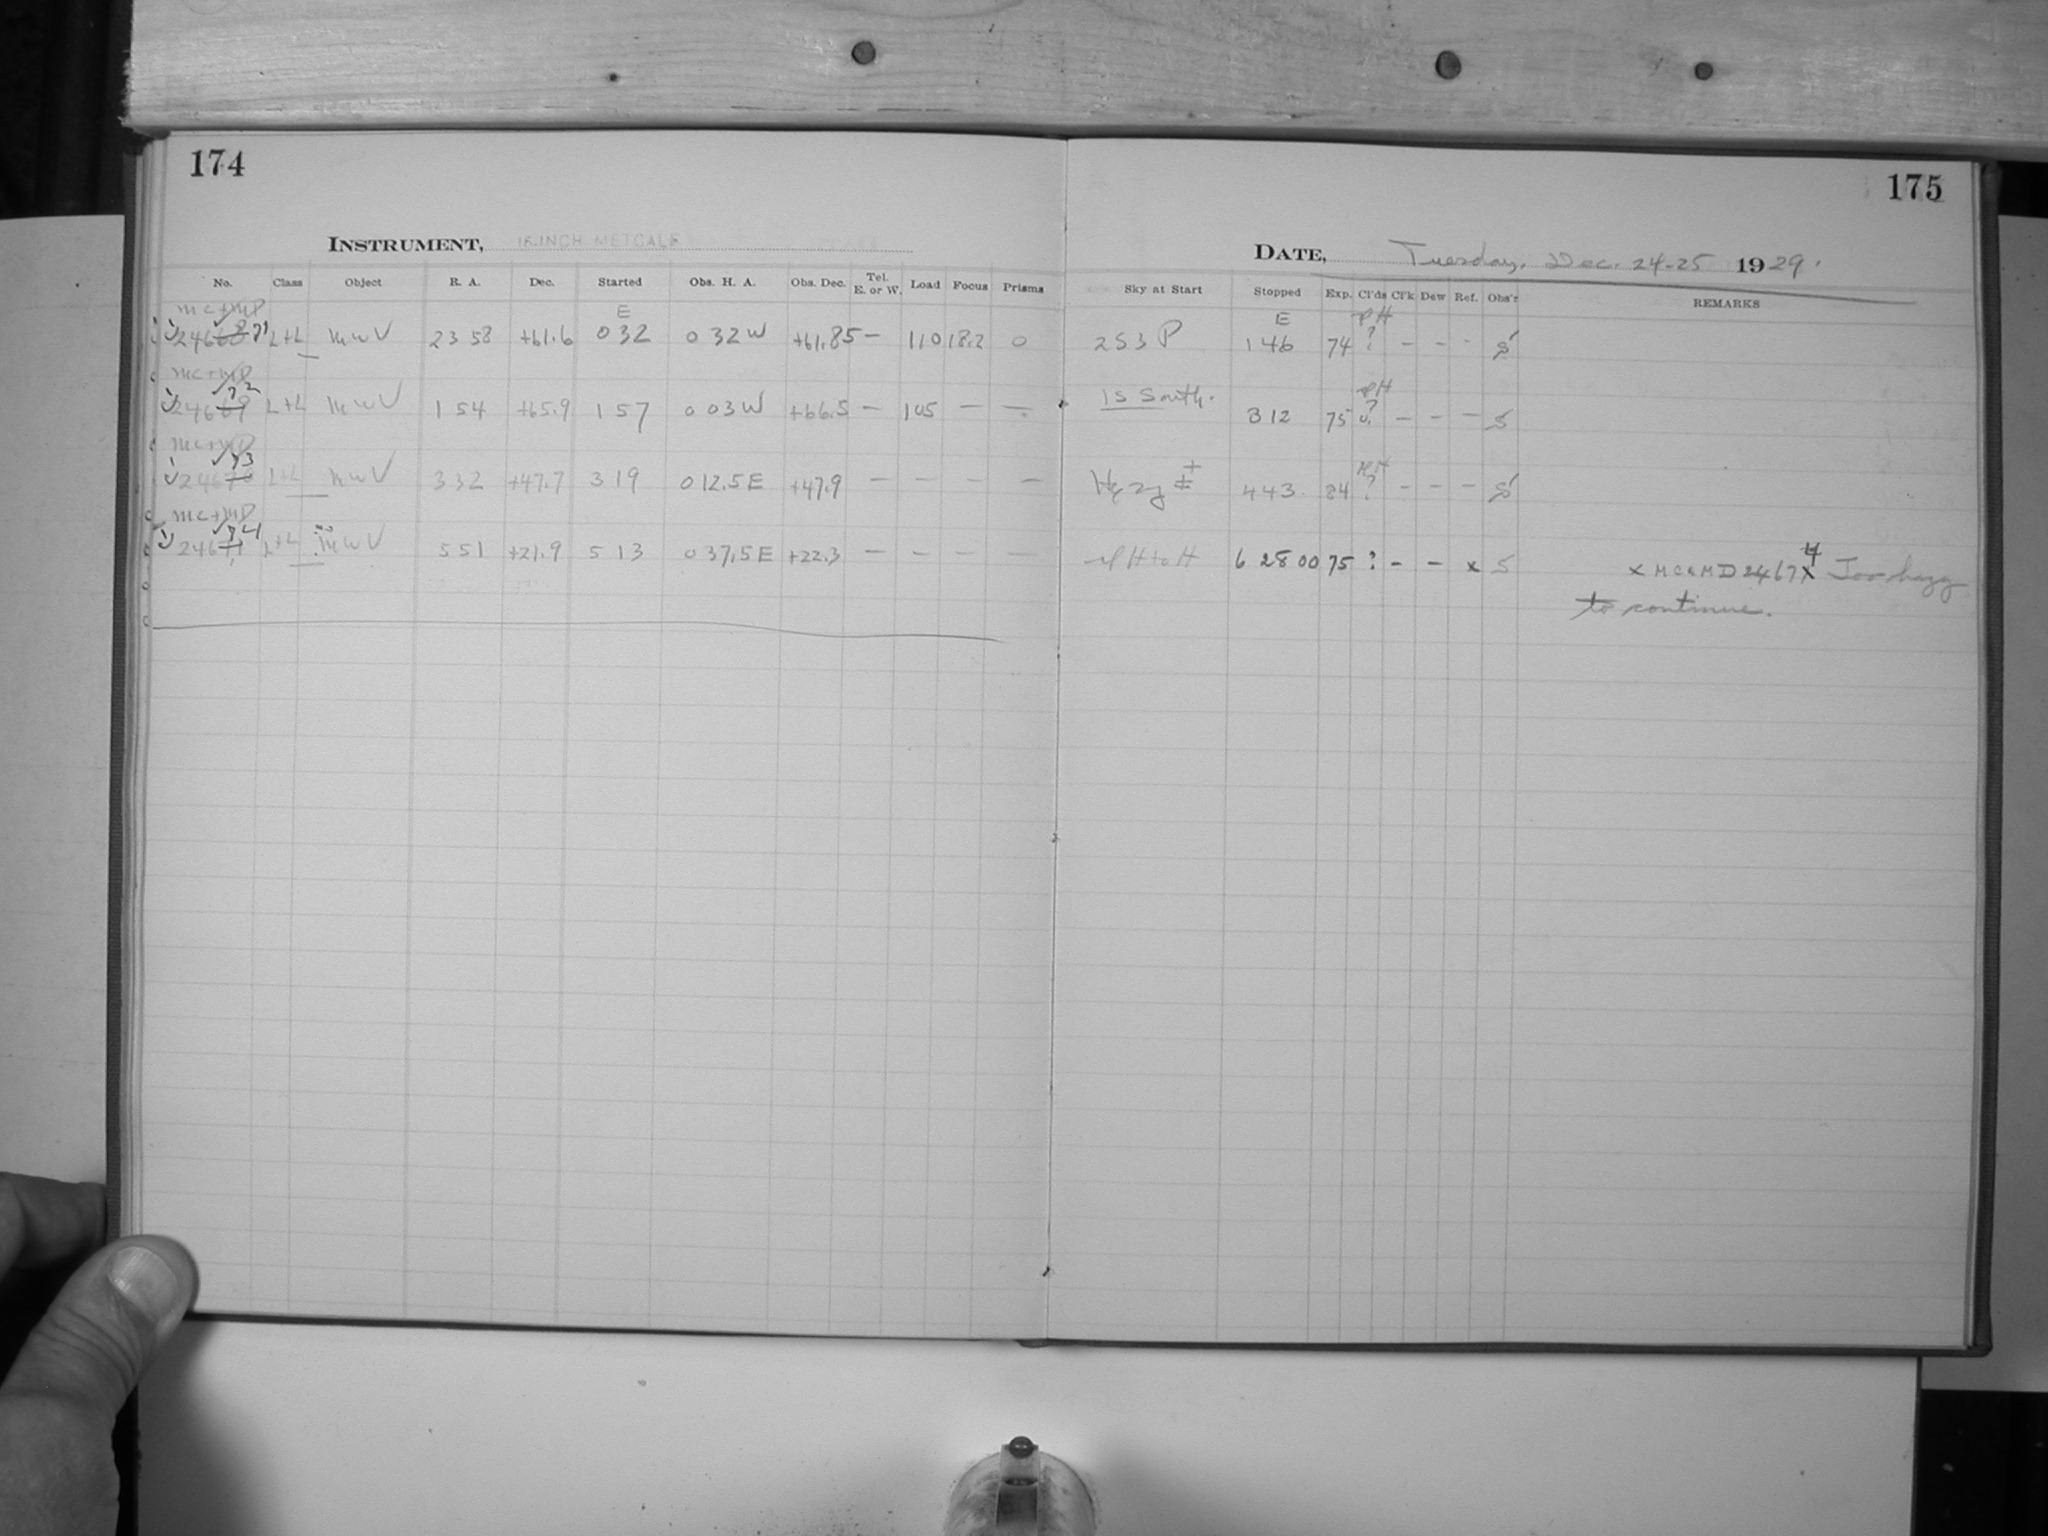 174
175
INSTRUMENT, 16-INCH METCALF
DATE, Tuesday, Dec. 24-25 1929.
No. Class Object R. A. Dec. Started Obs. H. A. Obs. Dec. Tel. E. or W. Load Focus Prisms Sky at Start Stopped Exp. Cl'ds Cl'k Dew Ref. Obs'r REMARKS
MC+MD E E PH
24668 71 L+L MWV 23 58 +61.6 0 32 0 32 W +61.85 — 110 18.2 0 2S3P 1 46 74 ? - - - S
MC+MD PH
24669 72 L+L MWV 1 54 +65.9 1 57 0 03 W +66.5 — 105 — — 1S South. 3 12 75 ? - - - S
MC+MD PH
24670 73 L+L MWV 3 32 +47.7 3 19 0 12.5 E +47.9 — — — — Hazy ± 4 43 84 ? - - - S
MC+MD
24671 74 L+L MWV 5 51 +21.9 5 13 0 37.5 E +22.3 — — — — PH to H 6 28 00 75 ? - - x S x MC&MD 24674 Too hazy
to continue.